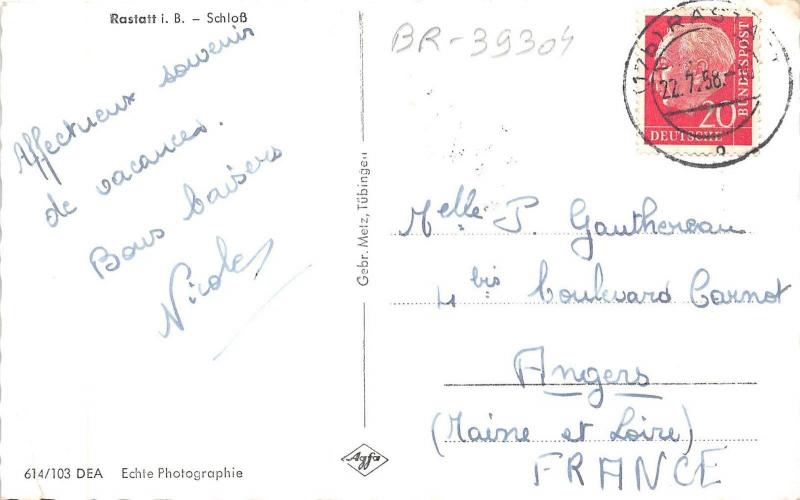 Rastatt i. B. – Schloß
BR-39304
Affectueux souvenir
de vacances.
Bons baisers
Nicole
Gebr. Metz, Tübingen
RASTATT
22.7.58.
20
DEUTSCHE
BUNDESPOST
Melle P. Gauthereau
4 bis boulevard Carnot
Angers
(Maine et Loire)
FRANCE
614/103 DEA Echte Photographie
Agfa